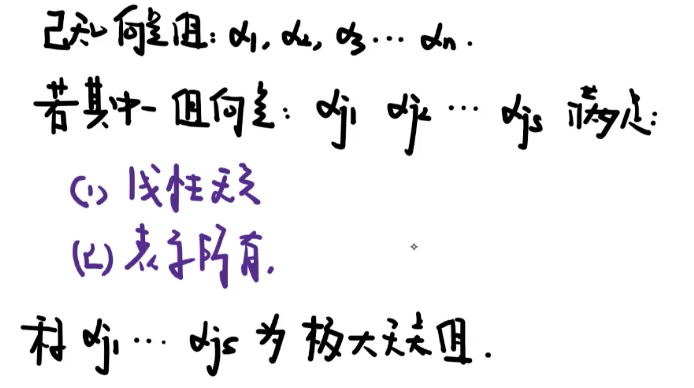 已知向量组: α₁, α₂, α₃ ⋯ αₙ.
若其中一组向量: αj₁ αj₂ ⋯ αjₛ 满足:
(1) 线性无关
(2) 表示所有.
称 αj₁ ⋯ αjₛ 为极大无关组.